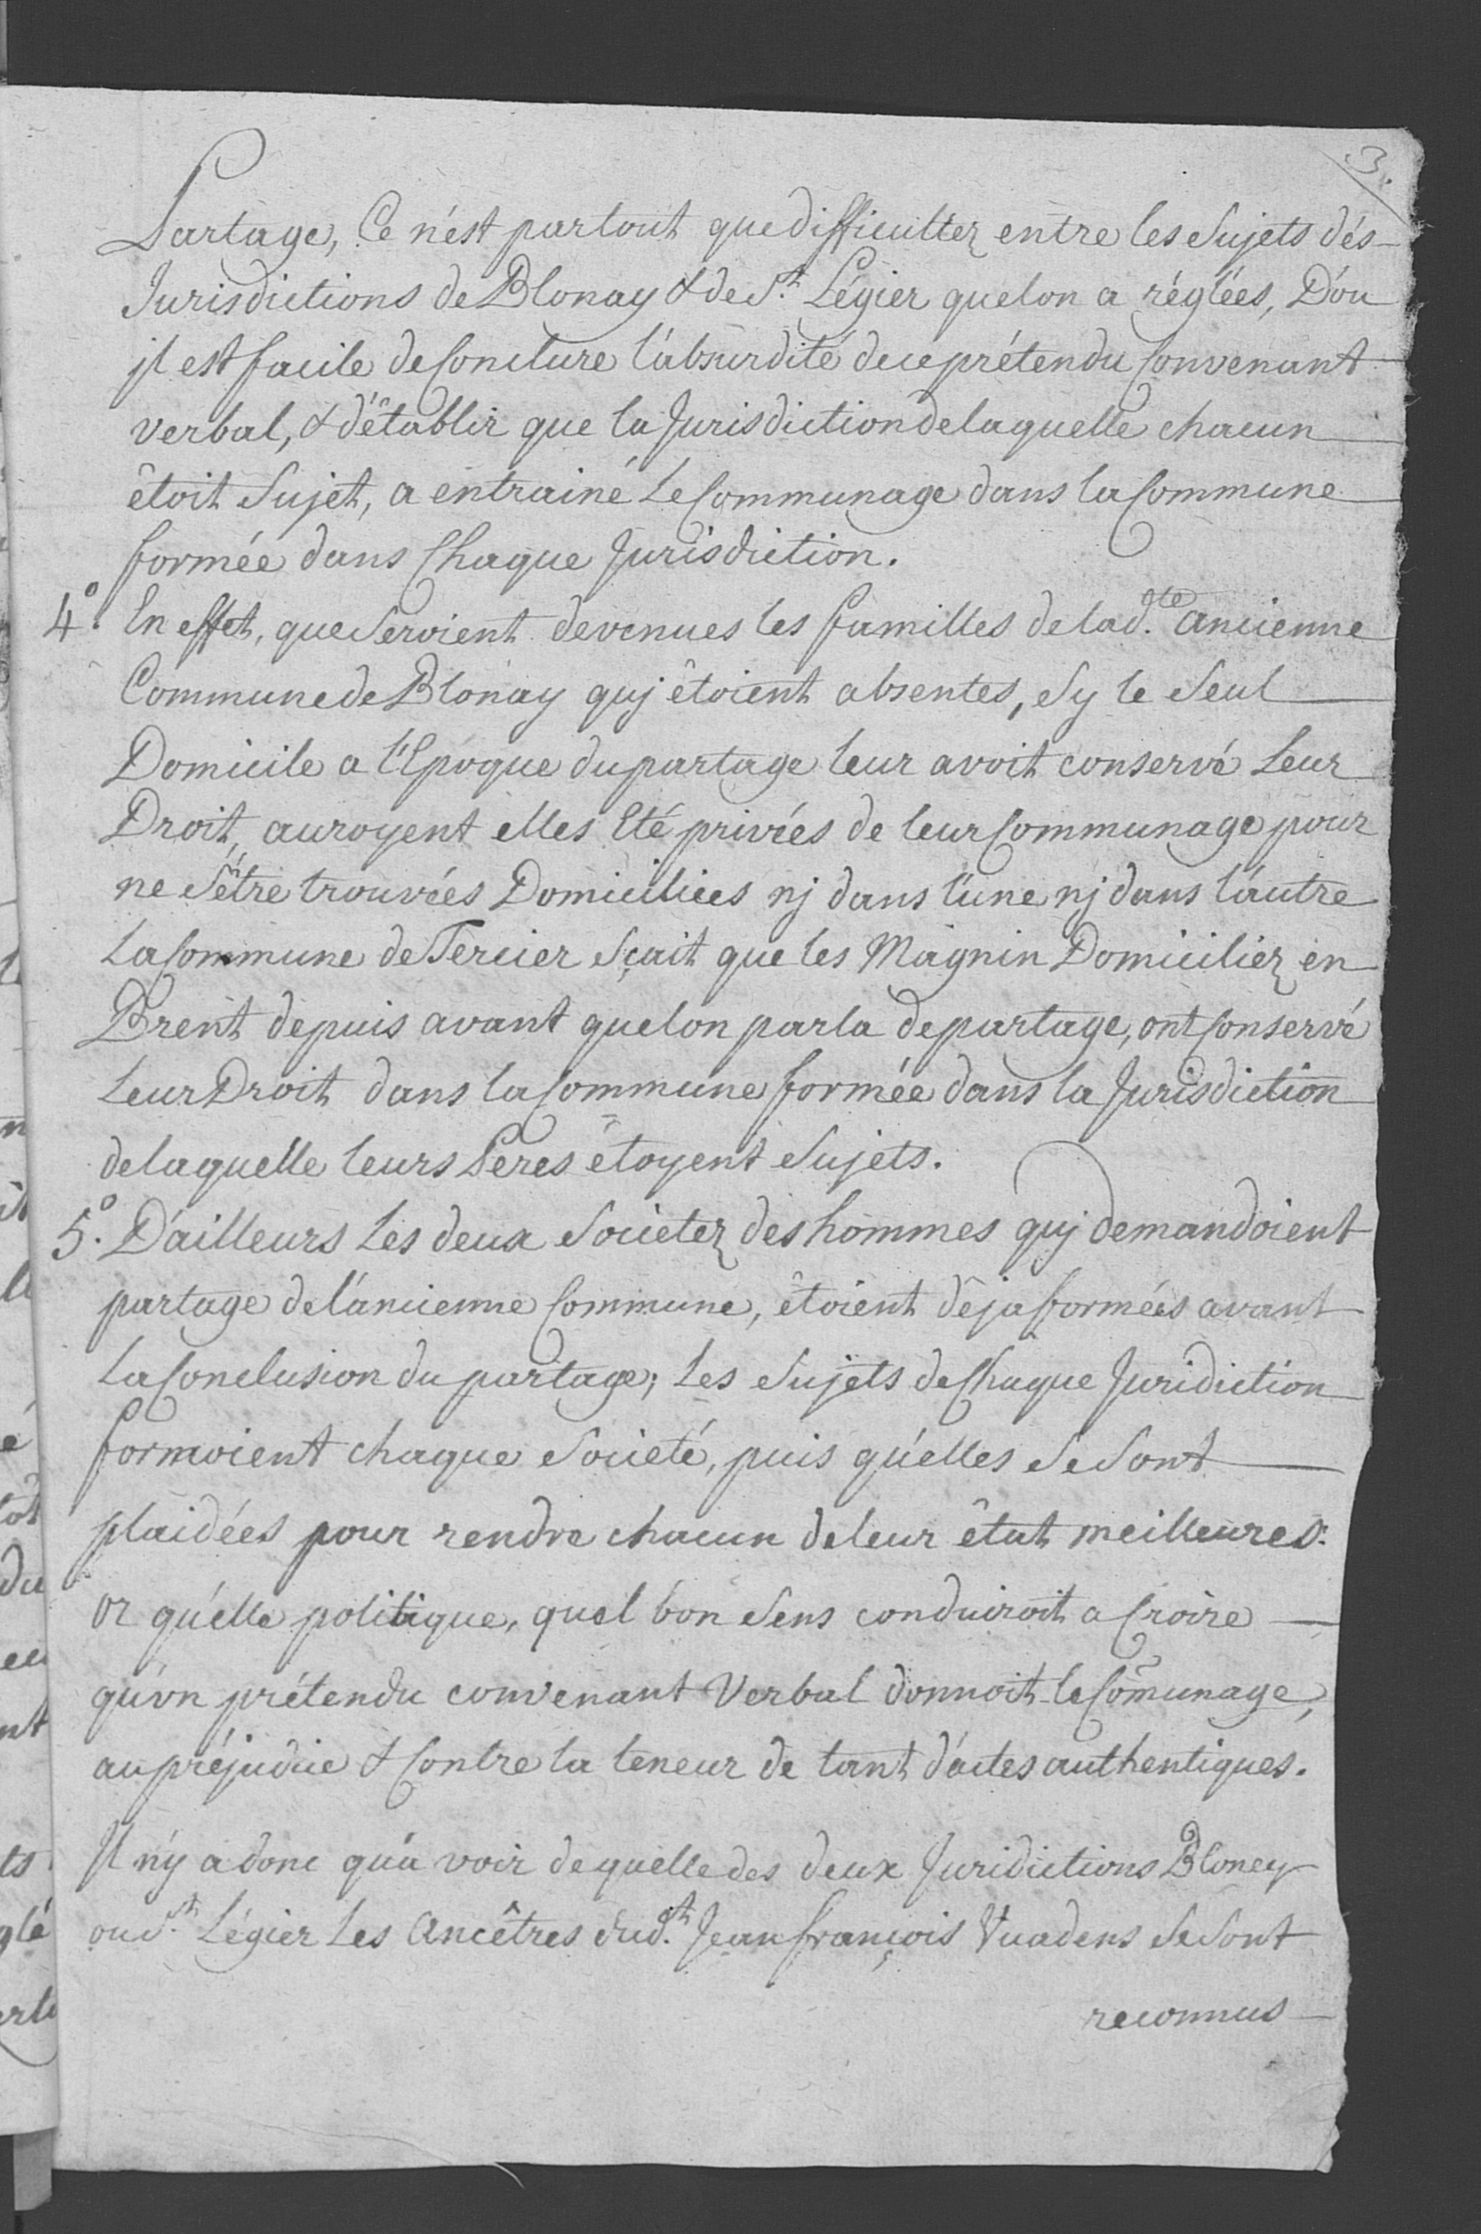 3.
Partage, Ce n'est partout que difficultez entre les Sujets dés
Jurisdictions de Blonay & de St. Légier quelon a réglées, D'ou
jl est facile de Conclure l'absurdité de ce prétendu Convenant
verbal, & d'établir que la Jurisdiction de laquelle chacun
êtoit Sujet, a entrainé Le Communage dans la Commune
formée dans Chaque Jurisdiction.
4.° En effet, que Seroient devenues les familles de lad.te ancienne
Commune de Blonay quj êtoient absentes, Sy le Seul
Domicile a l'Epoque du partage leur avoit conservé Leur
Droit, auroyent elles Eté privées de leur Communage pour
ne S'être trouvées Domiciliées nj dans l'une nj dans l'autre
La Commune de Tercier Sçait que les Magnin Domiciliez en
Brent depuis avant quelon parla de partage, ont Conservé
Leur Droit dans la Commune formée dans la Jurisdiction
de laquelle leurs Peres êtoyent Sujets.
5.° D'ailleurs Les deux Societez des hommes quj demandoient
partage de l'ancienne Commune, êtoient déja formées avant
La Conclusion du partage; Les Sujets de Chaque Juridiction
formoient chaque Societé, puis qu'elles Se Sont
plaidées pour rendre chacun de leur êtat meilleures:
or qu'elle politique, quel bon Sens conduiroit a Croire
qu'vn prétendu convenant Verbal donnoit le Com̃unage,
au préjudice & Contre la teneur de tant d'actes authentiques.
Jl n'y a donc qu'a voir de quelle des deux Juridictions Bloney
ou St. Légier Les Ancêtres dud.t Jean françois Vuadens Se Sont
reconnus